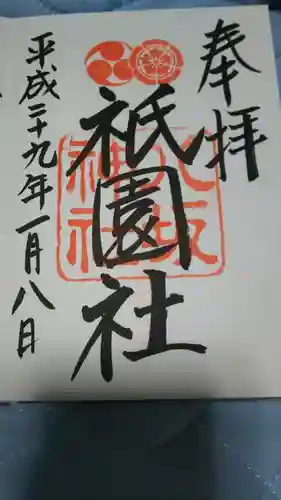 奉拝
祇園社
八坂神社
平成二十九年一月八日